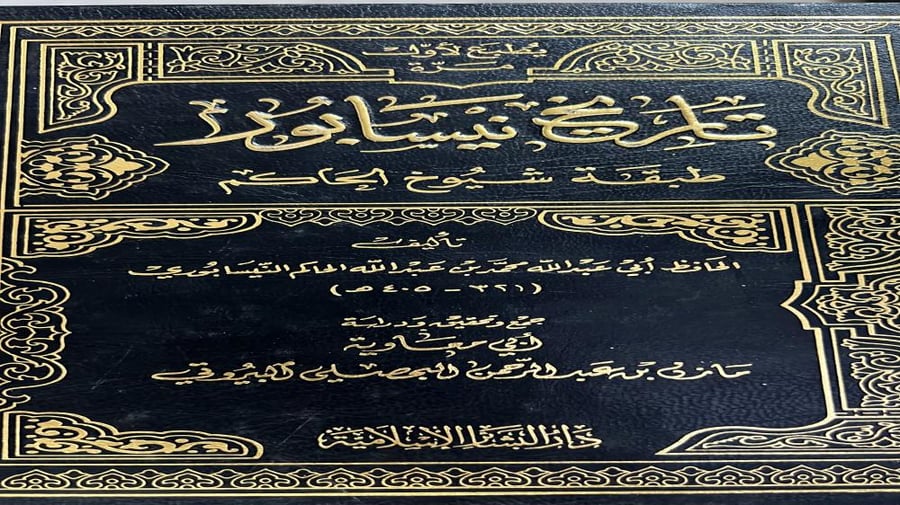 يطبع لأول
مرة
تاريخ نيسابور
طبقة شيوخ الحاكم
تأليف
الحافظ أبي عبد الله محمد بن عبد الله الحاكم النيسابوري
(٣٢١ - ٤٠٥ هـ)
جمع وتحقيق ودراسة
أبي معاوية
مازن بن عبد الرحمن البحصلي البيروتي
دار البشائر الإسلامية